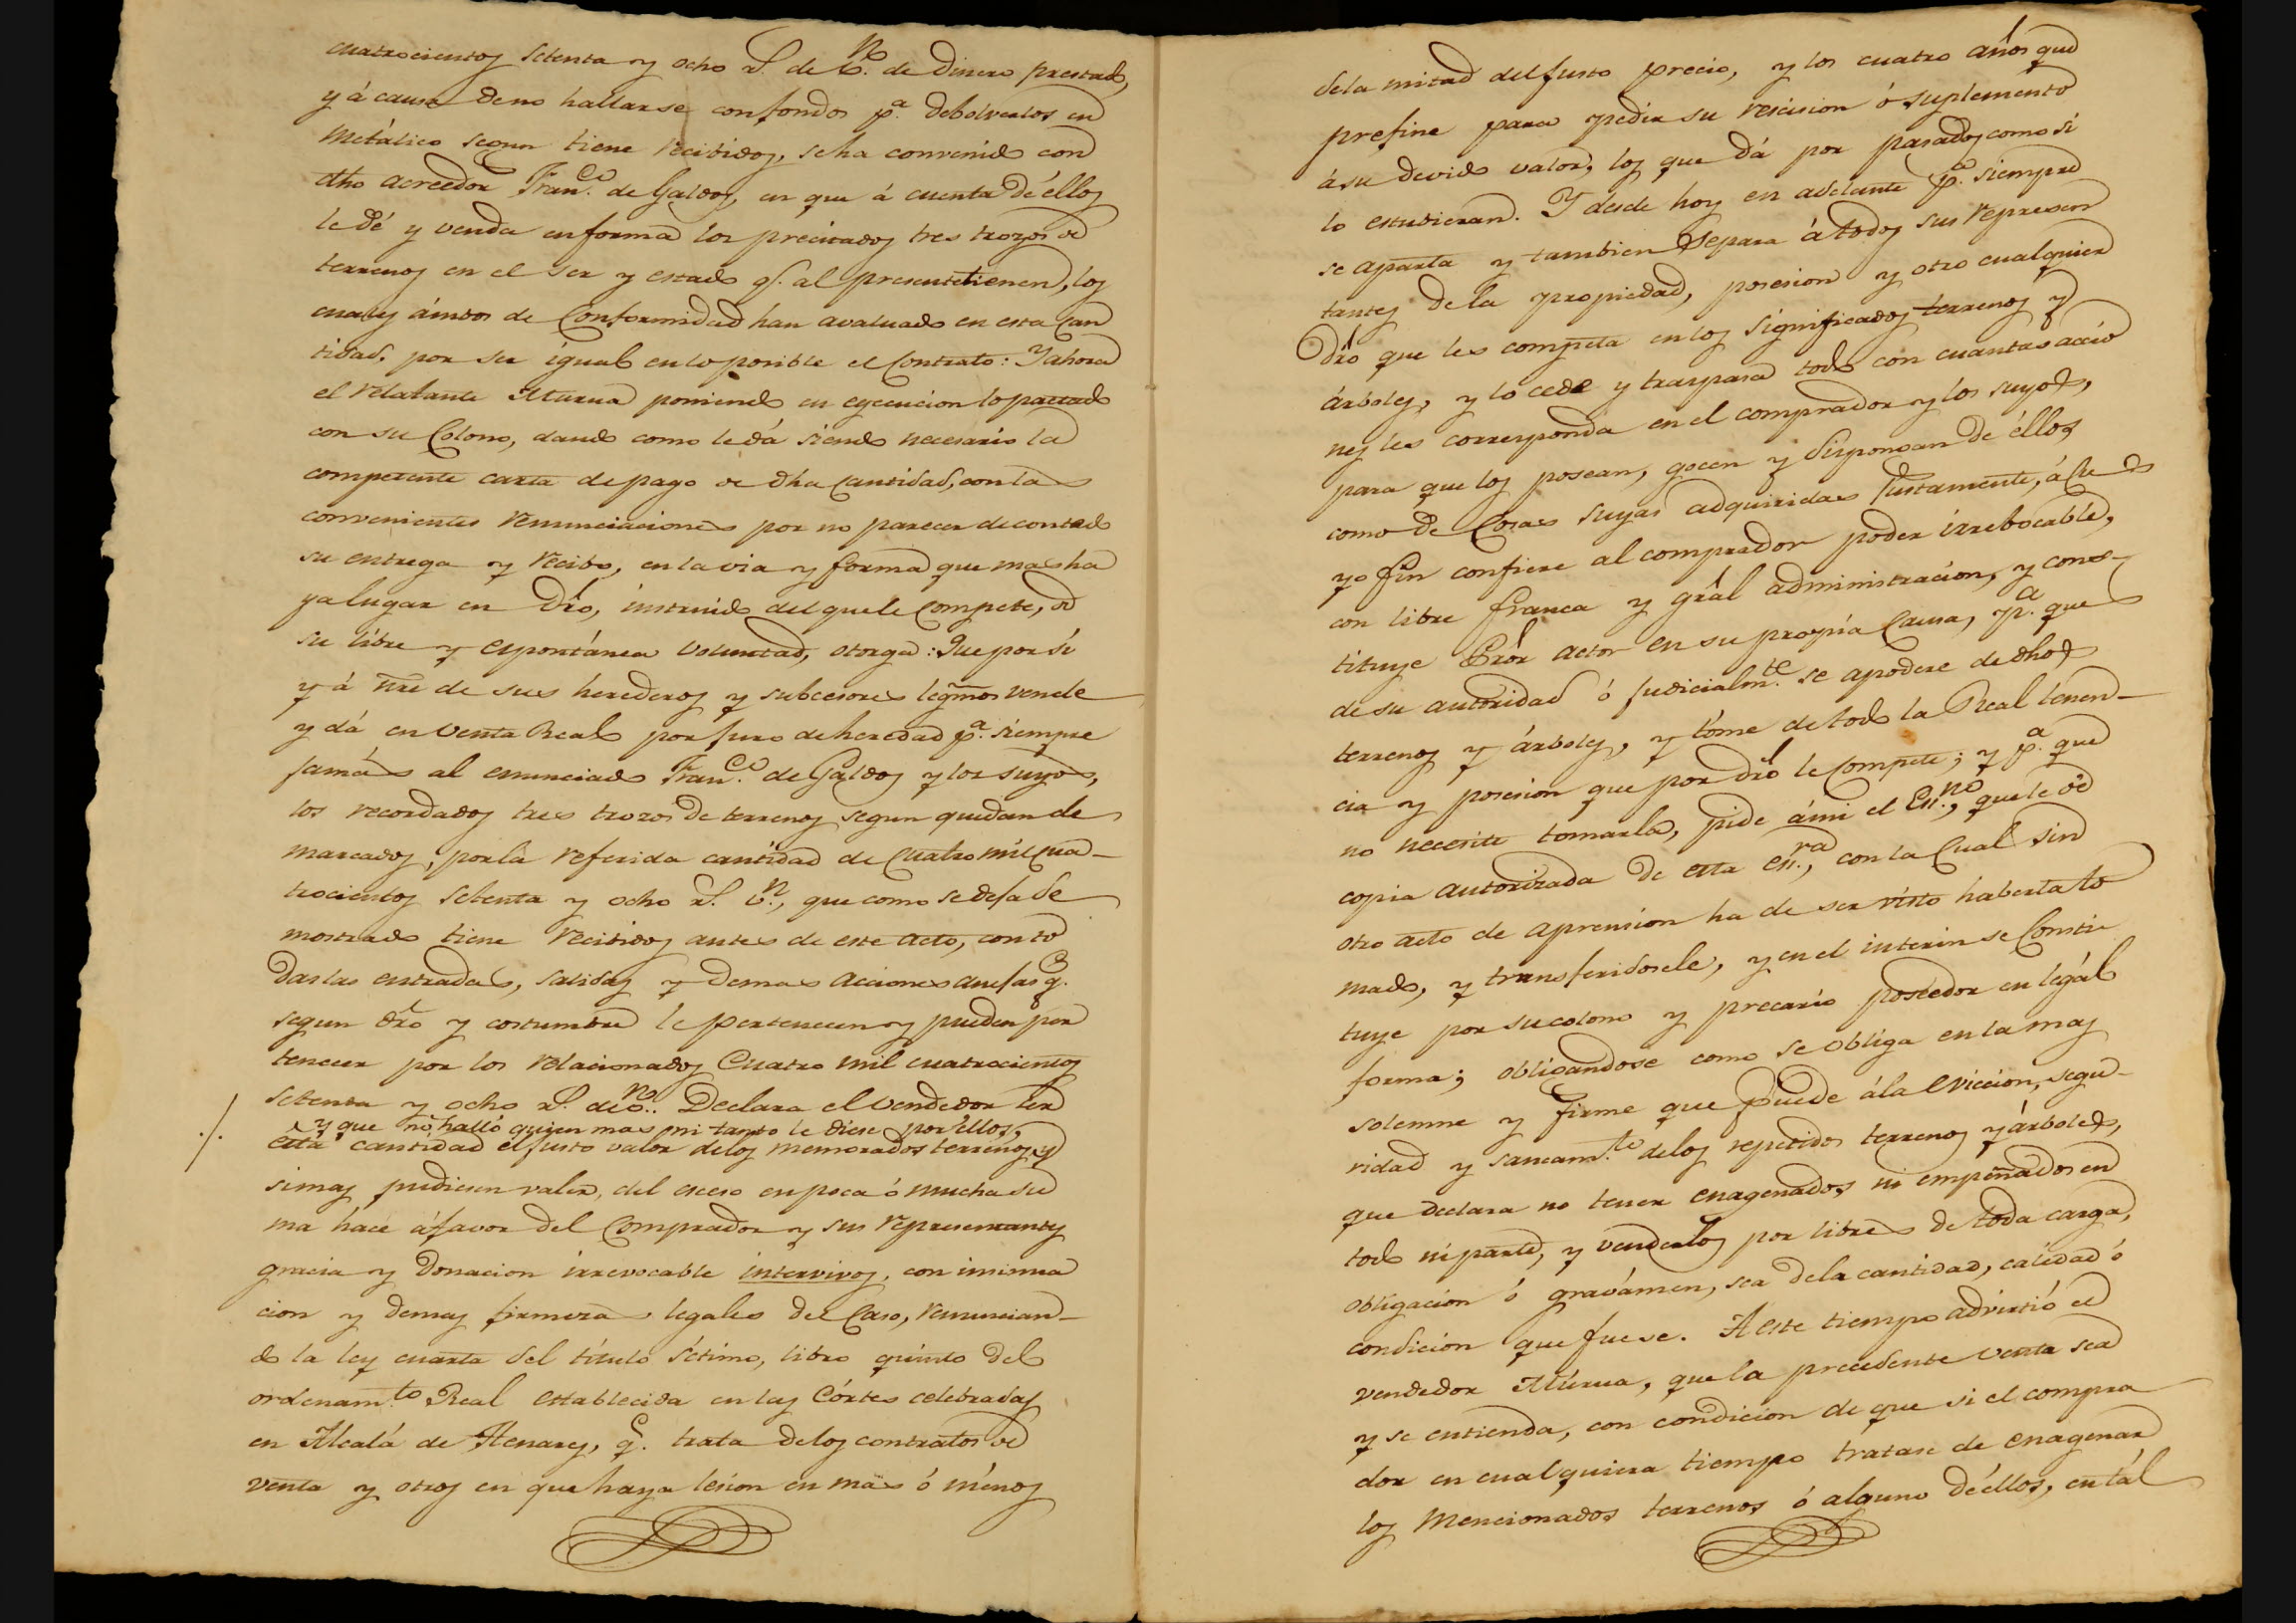 cuatrocientos setenta y ocho r.s de v.n de dinero prestado,
y á causa de no hallarse con fondos p.a debolverlos en
metálico segun tiene recibidos, se ha convenido con
dho acreedor Fran.co de Galdos, en que á cuenta de éllos
le dé y venda en forma los precitados tres trozos de
terrenos en el ser y estado q.e al presente tienen, los
cuales ámbos de Conformidad han avaluado en esta can
tidad, por ser igual en lo posible el Contrato: Y ahora
el relatante Murua poniendo en egecucion lo pactado
con su Colono, dando como le dá siendo necesario la
competente carta de pago de dha cantidad, con las
convenientes renunciaciones por no parecer de contado
su entrega y recibo, en la via y forma que mas ha
ya lugar en Dro, instruido del que le compete, de
su libre y espontánea voluntad, otorga: Que por sí
y á nre de sus herederos y subcesores legmos vende
y dá en venta Real por juro de heredad p.a siempre
jamás al enunciado Fran.co de Galdos y los suyos,
los recordados tres trozos de terrenos segun quedan de
marcados, por la referida cantidad de Cuatro mil cua-
trocientos setenta y ocho r.s v.n, que como se deja de
mostrado tiene recibidos antes de este acto, con to
das las entradas, salidas y demas acciones anejas q.e
segun dro y costumbre le pertenecen y pueden per
tenecer por los relacionados Cuatro mil cuatrocientos
setenta y ocho r.s de v.n. Declara el vendedor ser
y que no halló quien mas ni tanto le diese por éllos,
./. esta cantidad el justo valor de los memorados terrenos, y
si mas pudiesen valer, del exceso en poca ó mucha su
ma hace á favor del Comprador y sus representantes
gracia y Donacion irrevocable intervivos, con insinua
cion y demas firmezas legales del Caso, renuncian-
do la ley cuarta del título sétimo, libro quinto del
ordenam.to Real establecida en las Córtes celebradas
en Alcalá de Henares, q.e trata de los contratos de
venta y otros en que haya lesion en mas ó ménos
de la mitad del justo precio, y los cuatro años que
prefine para pedir su rescision ó suplemento
á su devido valor, los que dá por pasados como si
lo estubieran. Y desde hoy en adelante p.a siempre
se aparta y tambien separa á todos sus represen
tantes de la propiedad, posesion y otro cualquier
Dro que les competa en los significados terrenos y
árboles, y lo cede y traspasa todo con cuantas accio
nes les corresponda en el comprador y los suyos,
para que los posean, gocen y dispongan de éllos
como de Cosas suyas adquiridas Justamente, á cu
yo fin confiere al comprador poder irrebocable,
con libre franca y gral administracion, y cons-
tituye Pror actor en su propia Causa, p.a que
de su autoridad ó judicialm.te se apodere de dhos
terrenos y árboles, y tóme de todo la Real tenen-
cia y posesion que por dro le compete; y p.a que
no necesite tomarla, pide á mi el Es.no, que le dé
copia autorizada de esta es.ra, con la Cual sin
otro acto de aprension ha de ser visto haberla to
mado, y transferidosele, y en el interin se Consti
tuye por su colono y precario poseedor en legál
forma; obligandose como se obliga en la mas
solemne y firme que puede á la Eviccion, segu-
ridad y saneam.to de los repetidos terrenos y árboles,
que declara no tener enagenados ni empeñados en
todo ni parte, y venderlos por libres de toda carga,
obligacion ó gravámen, sea de la cantidad, calidad ó
condicion que fuese. A este tiempo advirtió el
vendedor Múrua, que la precedente venta sea
y se entienda, con condicion de que si el compra
dor en cualquiera tiempo tratase de enagenar
los mencionados terrenos ó alguno de éllos, en tál